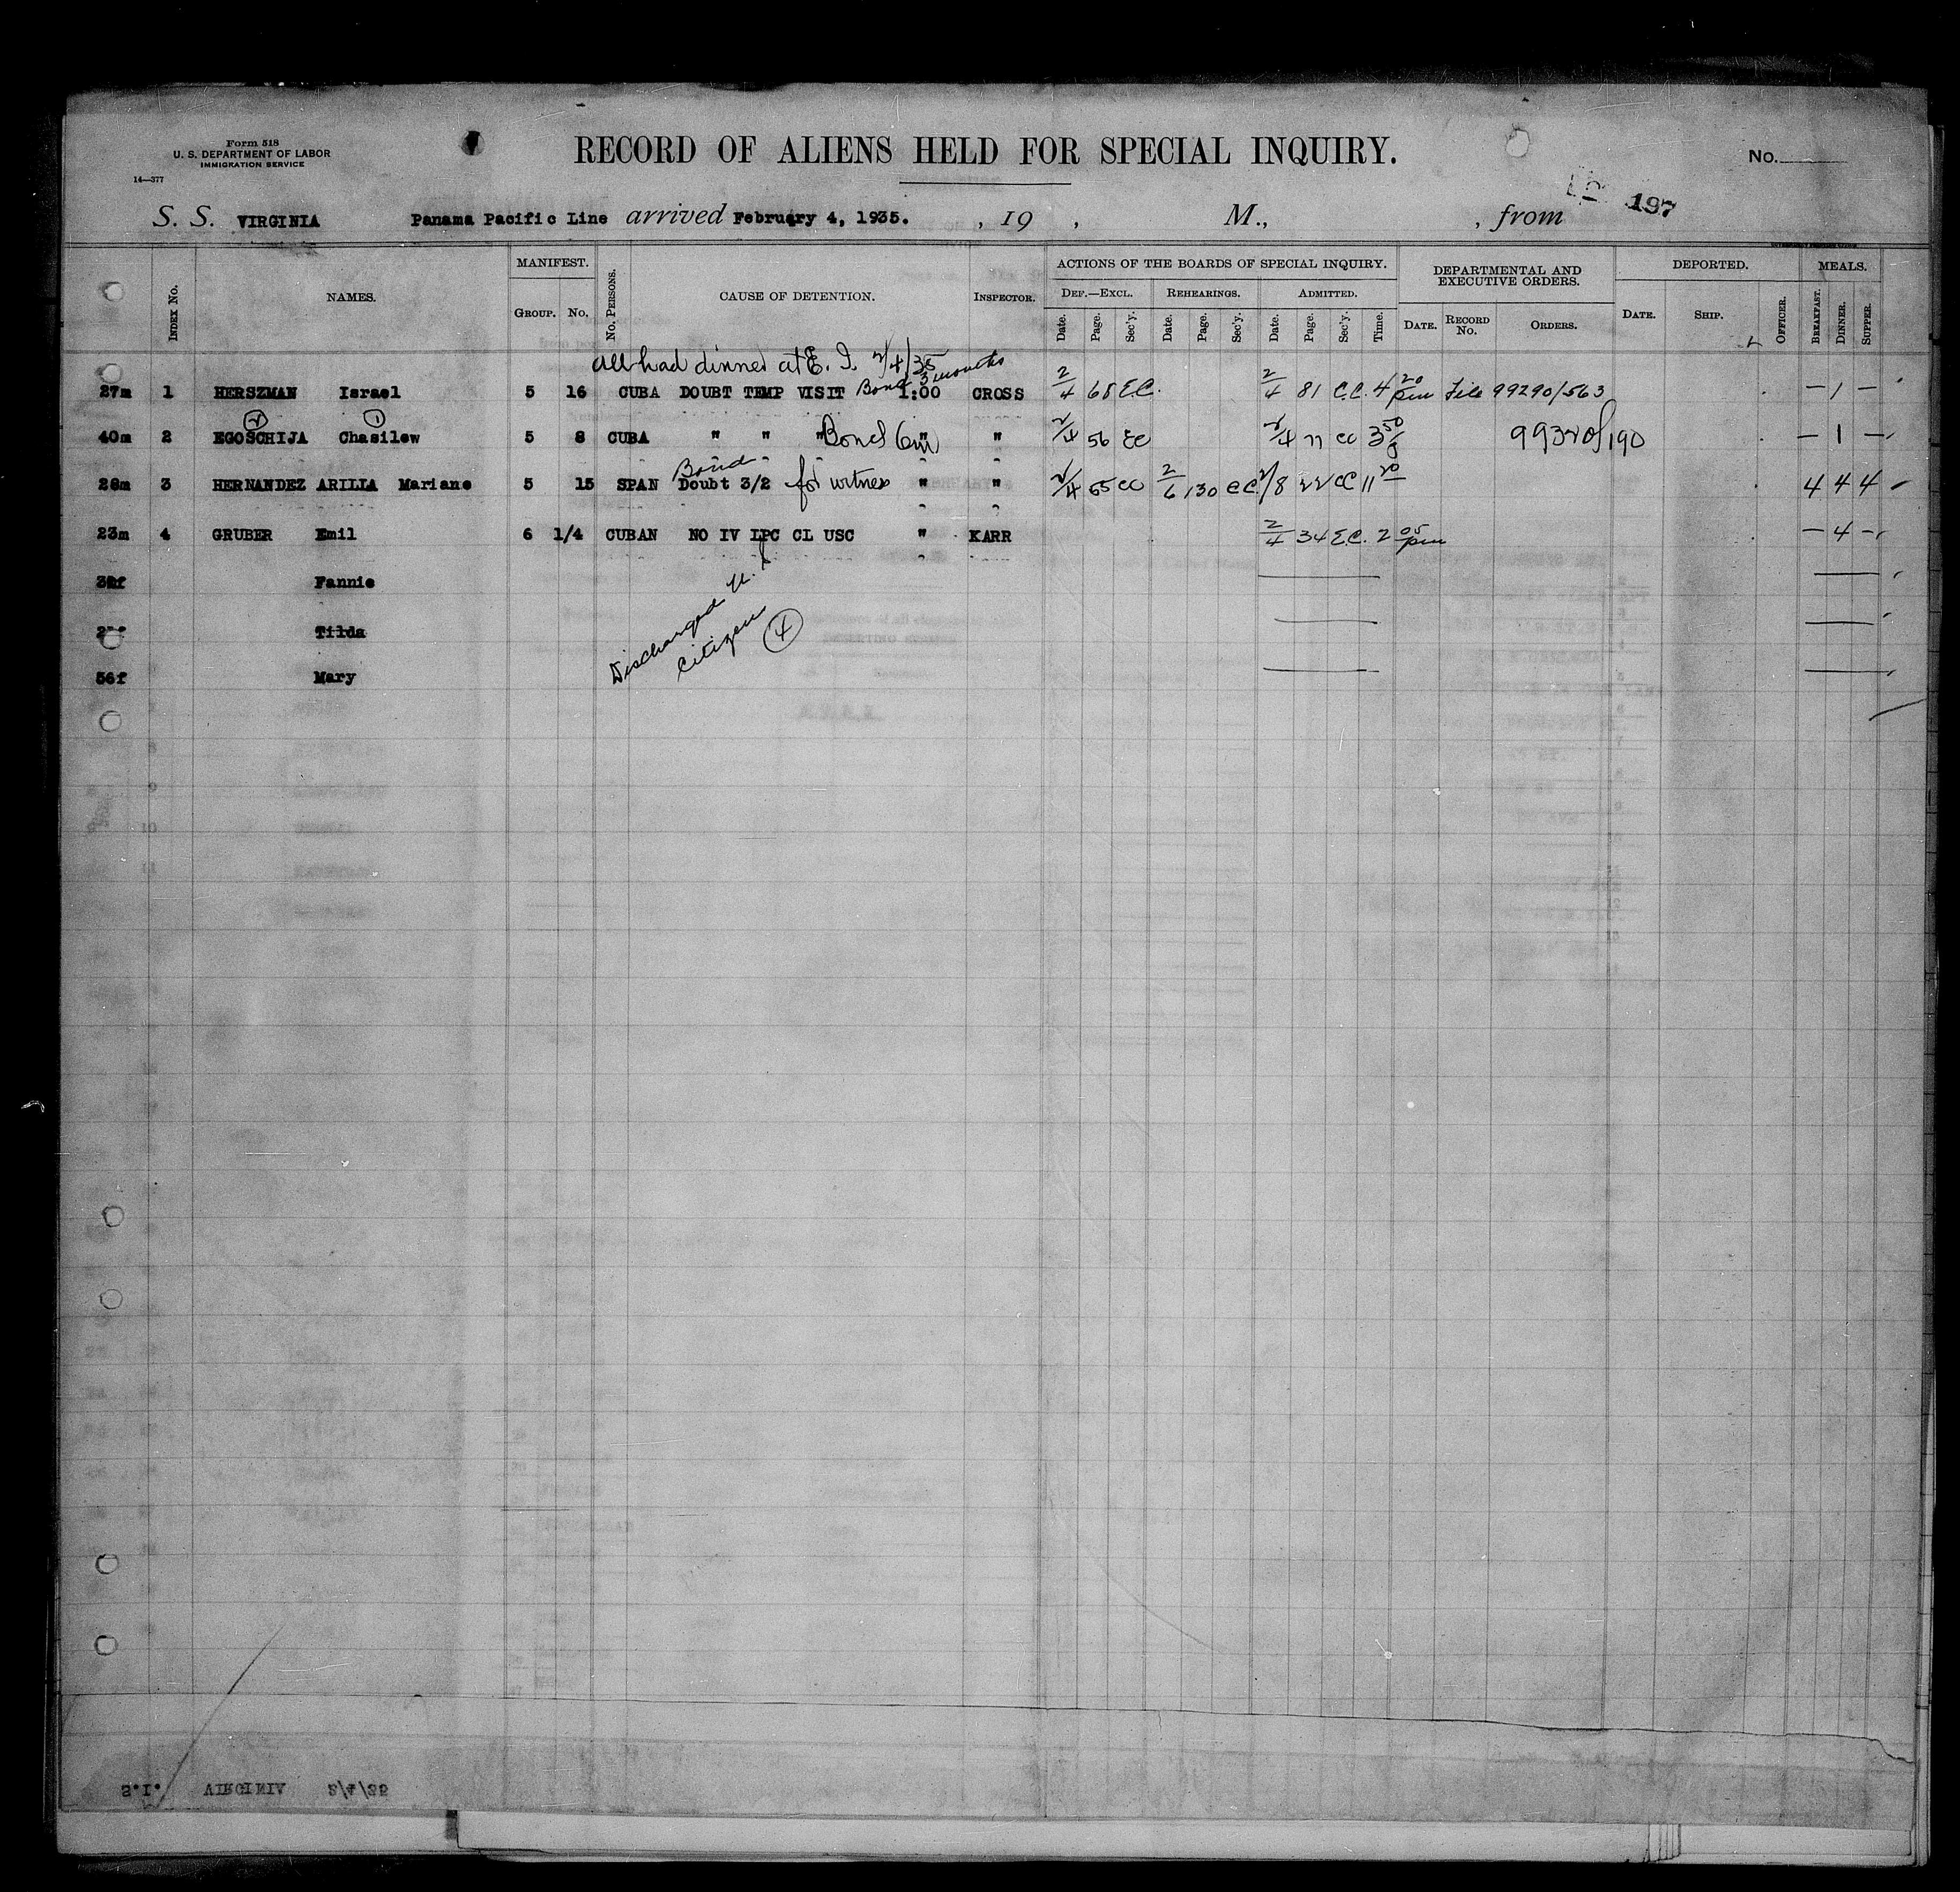 Form 518
U. S. DEPARTMENT OF LABOR
IMMIGRATION SERVICE
14—377
RECORD OF ALIENS HELD FOR SPECIAL INQUIRY.
No.
197
S. S. VIRGINIA Panama Pacific Line arrived February 4, 1935. , 19 , M., , from
INDEX No. NAMES. MANIFEST. GROUP. No. No. PERSONS. CAUSE OF DETENTION. INSPECTOR. ACTIONS OF THE BOARDS OF SPECIAL INQUIRY. DEPARTMENTAL AND EXECUTIVE ORDERS. DEPORTED. MEALS.
DEF.—EXCL. REHEARINGS. ADMITTED.
Date. Page. Sec'y. Date. Page. Sec'y. Date. Page. Sec'y. Time. DATE. RECORD No. ORDERS. DATE. SHIP. OFFICER. BREAKFAST. DINNER. SUPPER.
All had dinner at E. I. 2/4/35
Bond 3 months
27m 1 HERSZMAN Israel 5 16 CUBA DOUBT TEMP VISIT 1:00 CROSS 2/4 68 E.C. 2/4 81 C.C. 4 20 pm File 99290/563 — 1 —
2 1
40m 2 EGOSCHIJA Chasilew 5 8 CUBA " " " Bond 6m " " 2/4 56 EC 2/4 77 CC 3 50 99320/190 — 1 —
Bond
28m 3 HERNANDEZ ARILLA Mariano 5 15 SPAN Doubt 3/2 for witness " " 2/4 65 CC 2/6 130 CC 2/8 22 CC 11 20 4 4 4
23m 4 GRUBER Emil 6 1/4 CUBAN NO IV LPC CL USC " KARR 2/4 34 E.C. 2 05 pm — 4 —
Fannie
Tilda
56f Mary
Discharged U. S.
Citizen 4
S.I. VIRGINIA 2/4/35